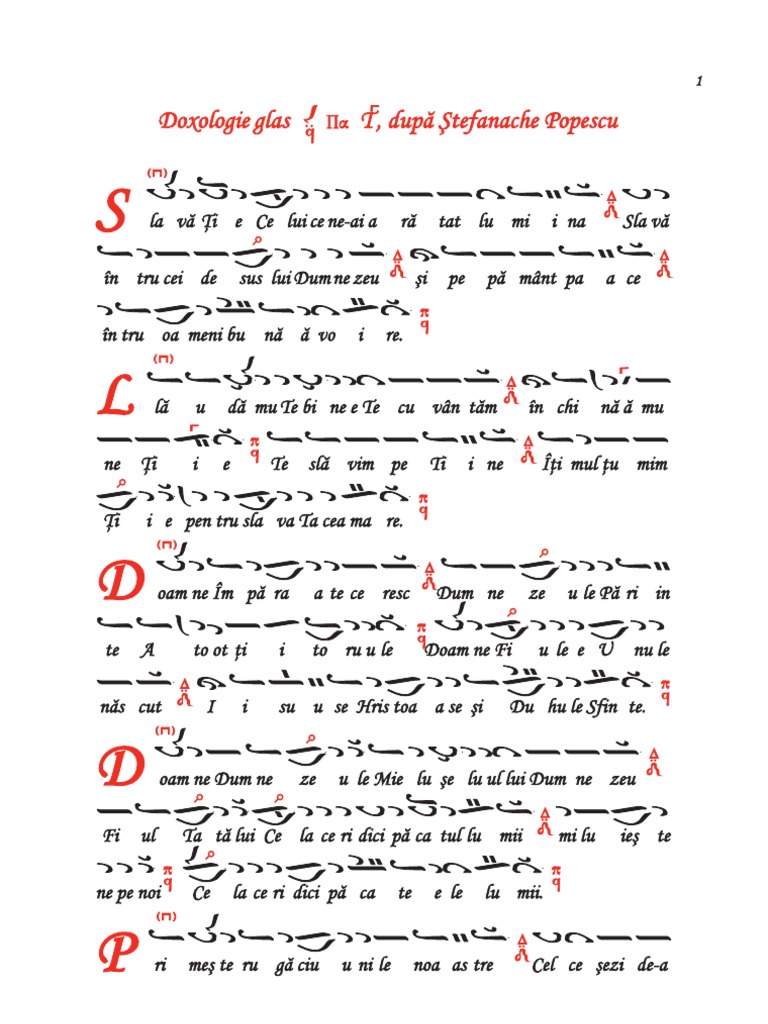 1
Doxologie glas Πα Γ, după Ștefanache Popescu
S la vă Ți e Ce lui ce ne-ai a ră tat lu mi i na Sla vă
în tru cei de sus lui Dum ne zeu și pe pă mânt pa a ce
în tru oa meni bu nă ă vo i re.
L lă u dă mu Te bi ne e Te cu vân tăm în chi nă ă mu
ne Ți i e Te slă vim pe Ti i ne Îți mul țu mim
Ți i e pen tru sla va Ta cea ma re.
D oam ne Îm pă ra a te ce resc Dum ne ze u le Pă ri in
te A to ot ți i to ru u le Doam ne Fi u le e U nu le
năs cut I i su u se Hris toa a se și Du hu le Sfin te.
D oam ne Dum ne ze u le Mie lu șe lu ul lui Dum ne zeu
Fi ul Ta tă lui Ce la ce ri dici pă ca tul lu mii mi lu ieș te
ne pe noi Ce la ce ri dici pă ca te e le lu mii.
P ri meș te ru gă ciu u ni le noa as tre Cel ce șezi de-a